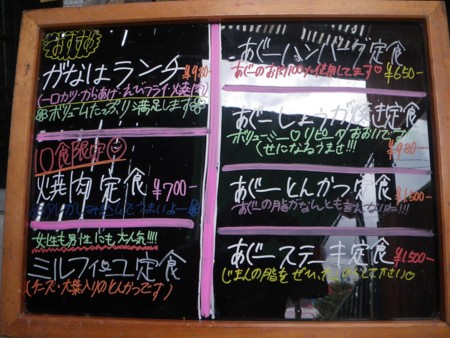 おすすめ
がなはランチ ¥980
(一口カツ・からあげ・えびフライ・焼肉)
ボリュームたっぷり満足します
10食限定
焼肉定食 ¥700-
女性も男性にも大人気!!!
ミルフィーユ定食
(チーズ・大葉入りのとんかつです)
あぐーハンバーグ定食
あぐーのお肉100%使用してます♡ ¥650-
あぐーしょうが焼き定食
ボリューミー♡リピーターおおいです
くせになるうまさ!!! ¥980-
あぐーとんかつ定食
あぐーの脂がなんとも言えないね!!!
あぐーステーキ定食 ¥1500-
じまんの脂をぜひ